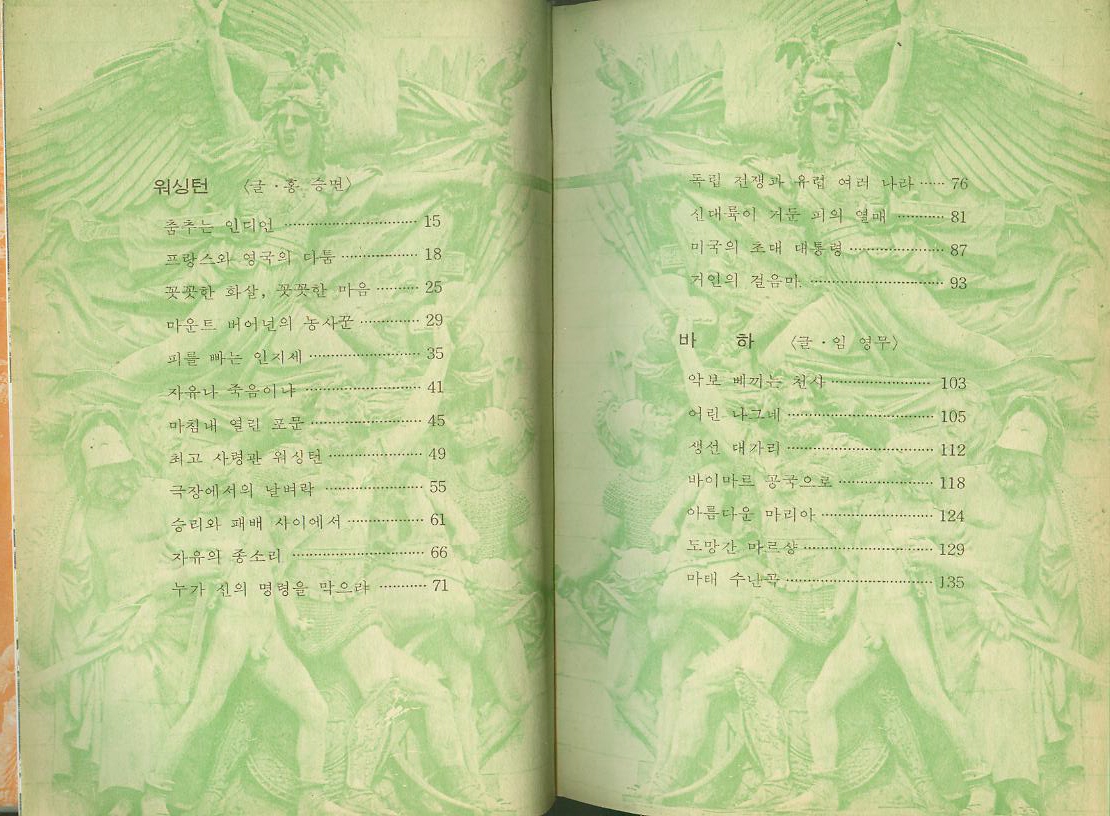 워싱턴 〈글·홍 승면〉
춤추는 인디언 ········ 15
프랑스와 영국의 다툼 ········ 18
꼿꼿한 화살, 꼿꼿한 마음 ········ 25
마운트 버어넌의 농사꾼 ········ 29
피를 빠는 인지세 ········ 35
자유냐 죽음이냐 ········ 41
마침내 열린 포문 ········ 45
최고 사령관 워싱턴 ········ 49
극장에서의 날벼락 ········ 55
승리와 패배 사이에서 ········ 61
자유의 종소리 ········ 66
누가 신의 명령을 막으랴 ········ 71
독립 전쟁과 유럽 여러 나라 ······ 76
신대륙이 거둔 피의 열매 ········ 81
미국의 초대 대통령 ········ 87
거인의 걸음마 ········ 93
바 하 〈글·임 영무〉
악보 베끼는 천사 ········ 103
어린 나그네 ········ 105
생선 대가리 ········ 112
바이마르 공국으로 ········ 118
아름다운 마리아 ········ 124
도망간 마르샹 ········ 129
마태 수난곡 ········ 135